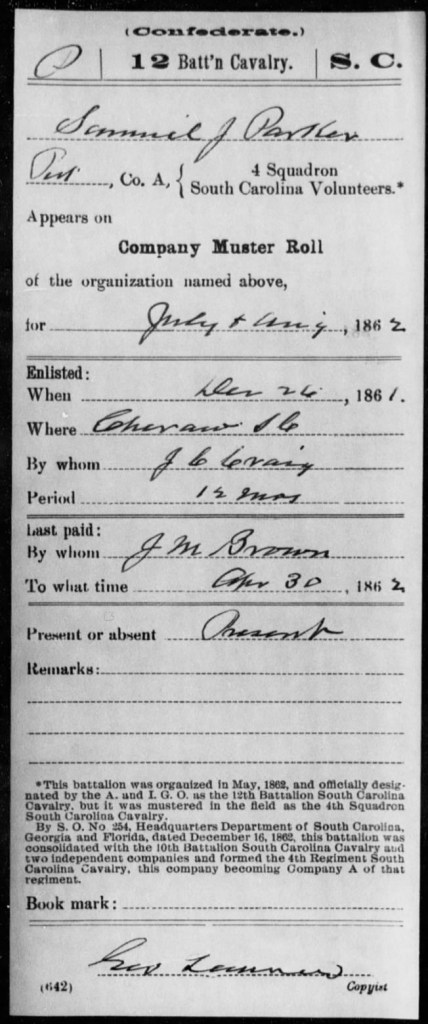 (Confederate.)
P | 12 Batt'n Cavalry. | S. C.
Samuel J Parker
Pvt, Co. A, { 4 Squadron
South Carolina Volunteers.*
Appears on
Company Muster Roll
of the organization named above,
for July & Aug, 1862
Enlisted:
When Dec 26, 1861.
Where Cheraw S C
By whom J C Craig
Period 12 mos
Last paid:
By whom J M Brown
To what time Apr 30, 1862
Present or absent Present
Remarks:
*This battalion was organized in May, 1862, and officially desig-
nated by the A. and I. G. O. as the 12th Battalion South Carolina
Cavalry, but it was mustered in the field as the 4th Squadron
South Carolina Cavalry.
By S. O. No 254, Headquarters Department of South Carolina,
Georgia and Florida, dated December 16, 1862, this battalion was
consolidated with the 10th Battalion South Carolina Cavalry and
two independent companies and formed the 4th Regiment South
Carolina Cavalry, this company becoming Company A of that
regiment.
Book mark:
Geo
(642) Copyist